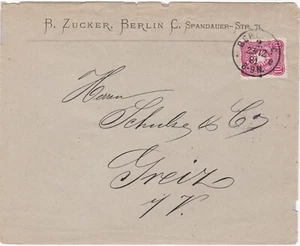 B. ZUCKER, BERLIN C. SPANDAUER-STR.
Herren
Schulze & Co
Greiz
i/V.